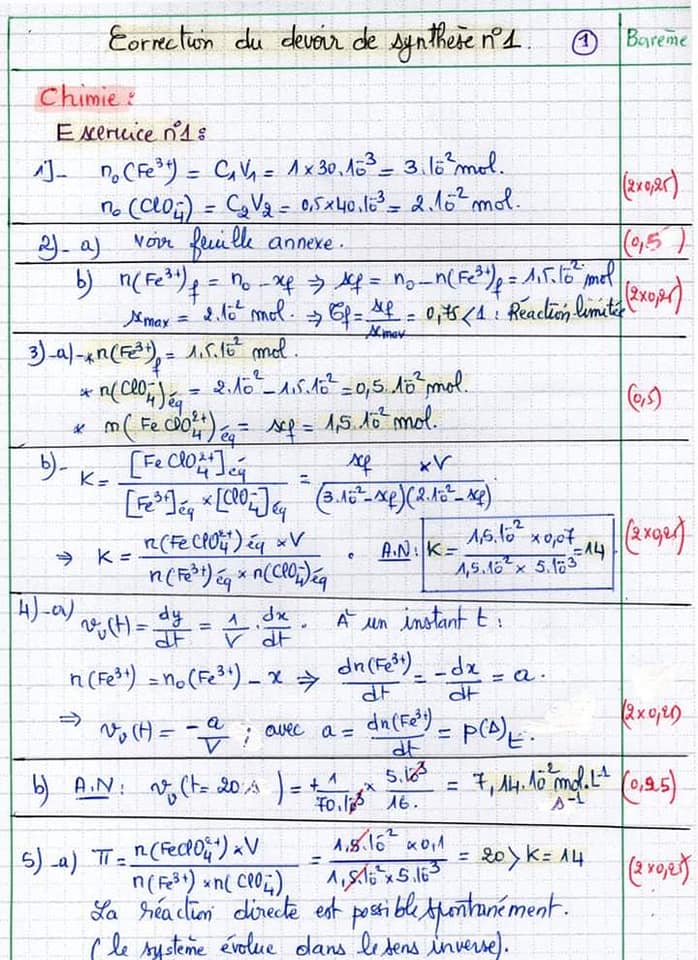 Correction du devoir de synthèse n°1. ① Barème
Chimie :
Exercice n°1 :
1]- n₀(Fe³⁺) = C₁V₁ = 1 × 30.10⁻³ = 3.10⁻² mol.
n₀(ClO₄⁻) = C₂V₂ = 0,5×40.10⁻³ = 2.10⁻² mol. (2x0,25)
2)- a) Voir feuille annexe. (0,5)
b) n(Fe³⁺)f = n₀ - xf ⇒ xf = n₀ - n(Fe³⁺)f = 1,5.10⁻² mol
xmax = 2.10⁻² mol. ⇒ τf = xf/xmax = 0,75 < 1 : Réaction limitée (2x0,25)
3)-a)-* n(Fe³⁺)f = 1,5.10⁻² mol.
* n(ClO₄⁻)éq = 2.10⁻² - 1,5.10⁻² = 0,5.10⁻² mol. (0,5)
* n(FeClO₄²⁺)éq = xf = 1,5.10⁻² mol.
b)- K = [FeClO₄²⁺]éq / [Fe³⁺]éq × [ClO₄⁻]éq = xf × V / (3.10⁻² - xf)(2.10⁻² - xf)
⇒ K = n(FeClO₄²⁺)éq × V / n(Fe³⁺)éq × n(ClO₄⁻)éq . A.N: K = 1,5.10⁻² × 0,07 / 1,5.10⁻² × 5.10⁻³ = 14 (2x0,25)
4)-a) vᵥ(t) = dy/dt = 1/V . dx/dt . A un instant t :
n(Fe³⁺) = n₀(Fe³⁺) - x ⇒ dn(Fe³⁺)/dt = -dx/dt = a.
⇒ vᵥ(t) = -a/V ; avec a = dn(Fe³⁺)/dt = p(Δ)t. (2x0,25)
b) A.N: vᵥ(t = 20 s) = + 1/70.10⁻³ × 5.10⁻³/16. = 7,14.10⁻² mol.L⁻¹ s⁻¹ (0,25)
5)-a) π = n(FeClO₄²⁺) × V / n(Fe³⁺) × n(ClO₄⁻) = 1,5.10⁻² × 0,1 / 1,5.10⁻² × 5.10⁻³ = 20 > K = 14 (2x0,25)
La réaction directe est possible spontanément.
(le système évolue dans le sens inverse).